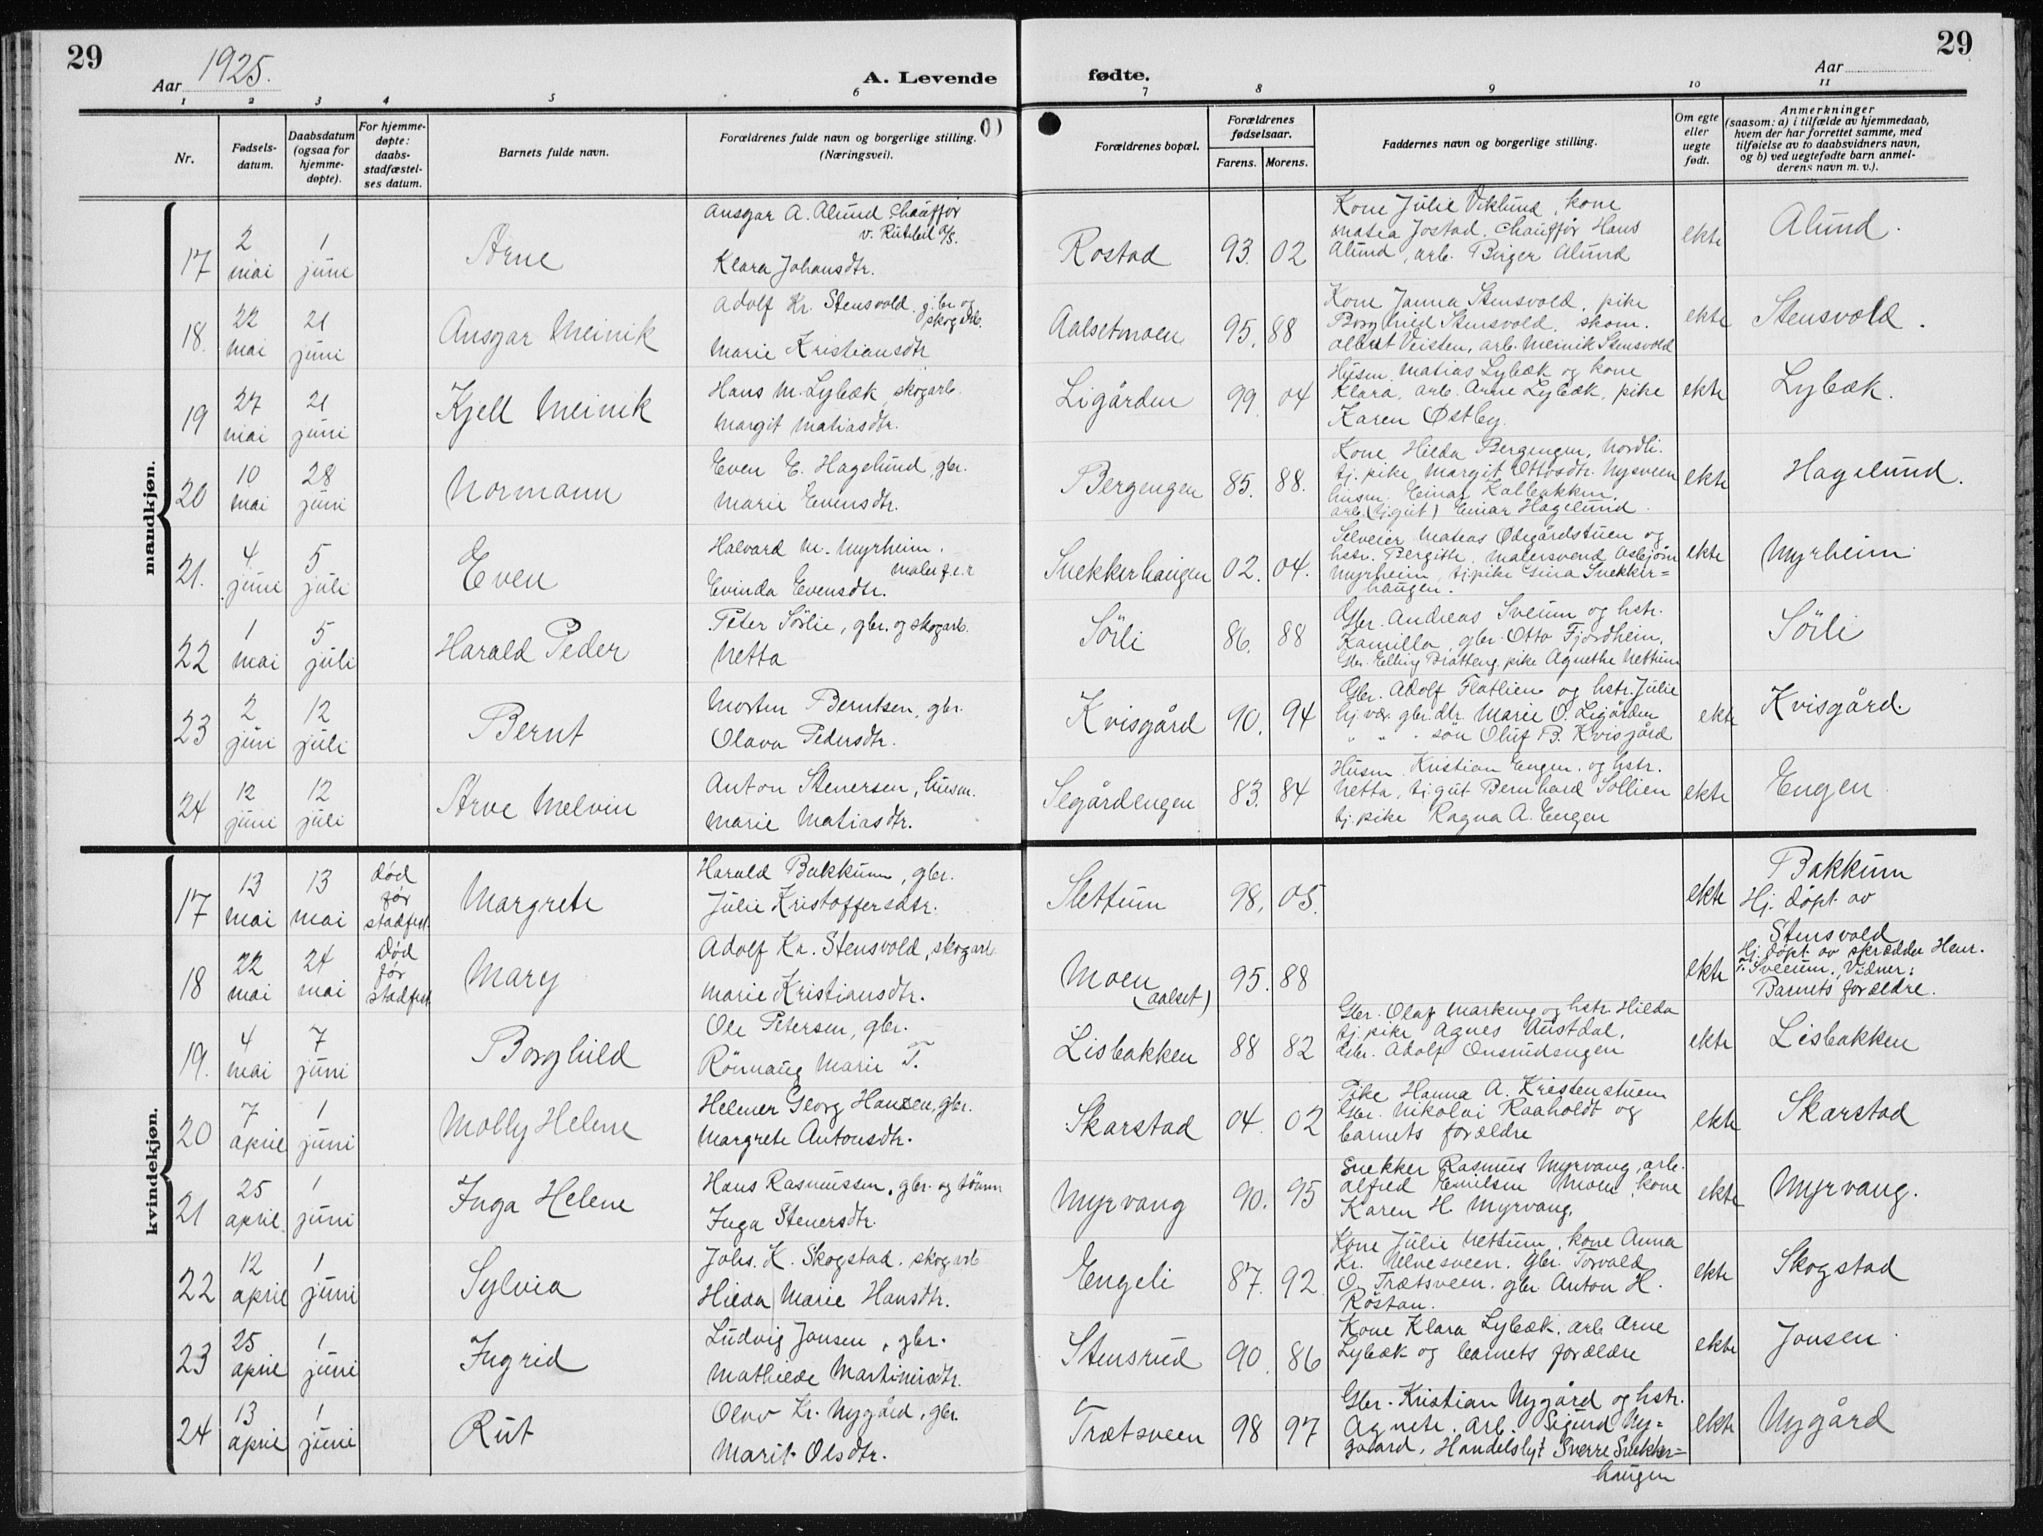 29
Aar 1925.
A. Levende
fødte.
Aar
29
1 2 3 4 5 6 7 8 9 10 11
Nr.
Fødsels-
datum.
Daabsdatum
(ogsaa for
hjemme-
døpte).
For hjemme-
døpte:
daabs-
stadfæstel-
ses datum.
Barnets fulde navn.
Forældrenes fulde navn og borgerlige stilling.
(Næringsvei).
Forældrenes bopæl.
Forældrenes
fødselsaar.
Farens. Morens.
Faddernes navn og borgerlige stilling.
Om egte
eller
uegte
født.
Anmerkninger
(saasom: a) i tilfælde av hjemmedaab,
hvem der har forrettet samme, med
tilføielse av to daabsvidners navn,
og b) ved uegtefødte barn anmel-
derens navn m. v.).
mandkjøn.
17
2
mai
1
juni
Arne
Ansgar A. Alund chauffør
v. Rutebil A/S.
Klara Johansdtr.
Rostad
93. 02
Kone Julie Viklund, kone
Matea Jostad, chauffør Hans
Alund, arb. Birger Alund
ekte
Alund.
18.
22
mai
21
juni
Ansgar Meinik
Adolf Kr. Stensvold, gbr og
skogarb.
Marie Kristiansdtr
Aalsetmoen
95. 88
Kone Janna Stensvold, pike
Borghild Stensvold, skom.
Albert Veisten, arb. Meinik Stensvold
ekte
Stensvold.
19
27
mai
21
juni
Kjell Meinik
Hans M. Lybæk, skogarb.
Margit Matiasdtr.
Ligården
99. 04
Husm. Matias Lybæk og kone
Klara, arb. Arne Lybæk, pike
Karen Østby.
ekte
Lybæk.
20
10
mai
28
juni
Normann
Even E. Hagelund, gbr.
Marie Evensdtr.
Bergengen
85. 88.
Kone Hilda Bergengen, Nordli.
tj. pike Margit Ottosdtr. Nysveen
husm. Einar Kalbakken,
arb. (tj. gut) Einar Hagelund.
ekte
Hagelund.
21.
4
juni
5
juli
Even
Halvard M. Myrheim.
maler f.e.r
Evinda Evensdtr.
Snekkerhaugen
02. 04.
Selveier Mateas Ødegårdstuen og
hstr. Bergitte, malersvend Asbjørn
Myrheim, tj. pike Gina Snekker=
haugen.
ekte
Myrheim
22
1
mai
5
juli
Harald Peder
Peter Sørlie, gbr. og skogarb.
Netta
Sörli
86. 88
Gbr. Andreas Sveum og hstr.
Kamilla, gbr. Otto Fjordheim,
Gbr. Elling Bratteng, pike Agnethe Nettum
Sörli
23
2
juni
12
juli
Bernt
Morten Berntsen, gbr.
Olava Pedersdtr.
Kvisgård
90. 94
Gbr. Adolf Flatlien og hstr. Julie
hj. vær. gbr. dtr. Marie O. Ligården
" " . søn Oluf B. Kvisgård
ekte
Kvisgård.
24
12
juni
12
juli
Arve Melvin
Anton Stenersen, husm.
Marie Matiasdtr.
Segårdengen
83. 84
Husm. Kristian Engen og hstr.
Netta, tj. gut Bernhard Sollien
tj. pike Ragna A. Engen
ekte
Engen
kvindekjøn.
17
13
mai
13
mai
død
før
stadfest.
Margrete
Harald Bakkum, gbr.
Julie Kristoffersdtr.
Slettum
98. 05.
ekte
Bakkum
Hj. døpt av
18
22
mai
24
mai
Død
før
stadfest
Mary
Adolf Kr. Stensvold, skogarb.
Marie Kristiansdtr.
Moen
(Aalset)
95. 88
ekte
Stensvold
Hj. døpt av skrædder Henr.
T. Sveum. Vidner:
Barnets forældre.
19.
4
mai
7
juni
Borghild
Ole Petersen, gbr.
Rönnaug Marie T.
Lisbakken
88 82
Gbr. Olaf Markeng og hstr. Hilda
tj. pike Agnes Austdal,
Gbr. Adolf Onsrudengen
ekte
Lisbakken
20
7
april
1
juni
Molly Helene
Helmer Georg Hansen, gbr.
Margrete Antonsdtr.
Skarstad
04. 02
Pike Hanna A. Kristenstuen
Gbr. Nikolai Raaholdt og
barnets forældre
ekte
Skarstad
21
25
april.
1
juni
Inga Helene
Hans Rasmussen, gbr. og tömm
Inga Stenersdtr.
Myrvang
90. 95
Snekker Rasmus Myrvang, arb.
Alfred Emilsen Moen, kone
Karen H. Myrvang.
ekte
Myrvang.
22
12
april
1
juni
Sylvia
Johs. K. Skogstad, skogarb
Hilda Marie Hansdtr.
Engeli
87. 92
Kone Julie Nettum, kone Anna
Kr. Ulvesveen. Gbr. Torvald
O. Trætsveen. gbr Anton H.
Röstan.
ekte
Skogstad
23
25
april
1
juni
Ingrid
Ludvig Jansen, gbr.
Mathilde Martinusdtr.
Stensrud
90. 86
Kone Klara Lybæk, arb Arne
Lybæk og barnets forældre
ekte
Jonsen
24
13
april
1
juni
Rut
Olav Kr. Nygård, gbr.
Marit Olsdtr.
Trætsveen
98 97
Gbr. Kristian Nygård og hstr.
Agnete, arb. Sigurd Ny=
gaard, Handelsbyt Sverre Snekker=
haugen
ekte
Nygård